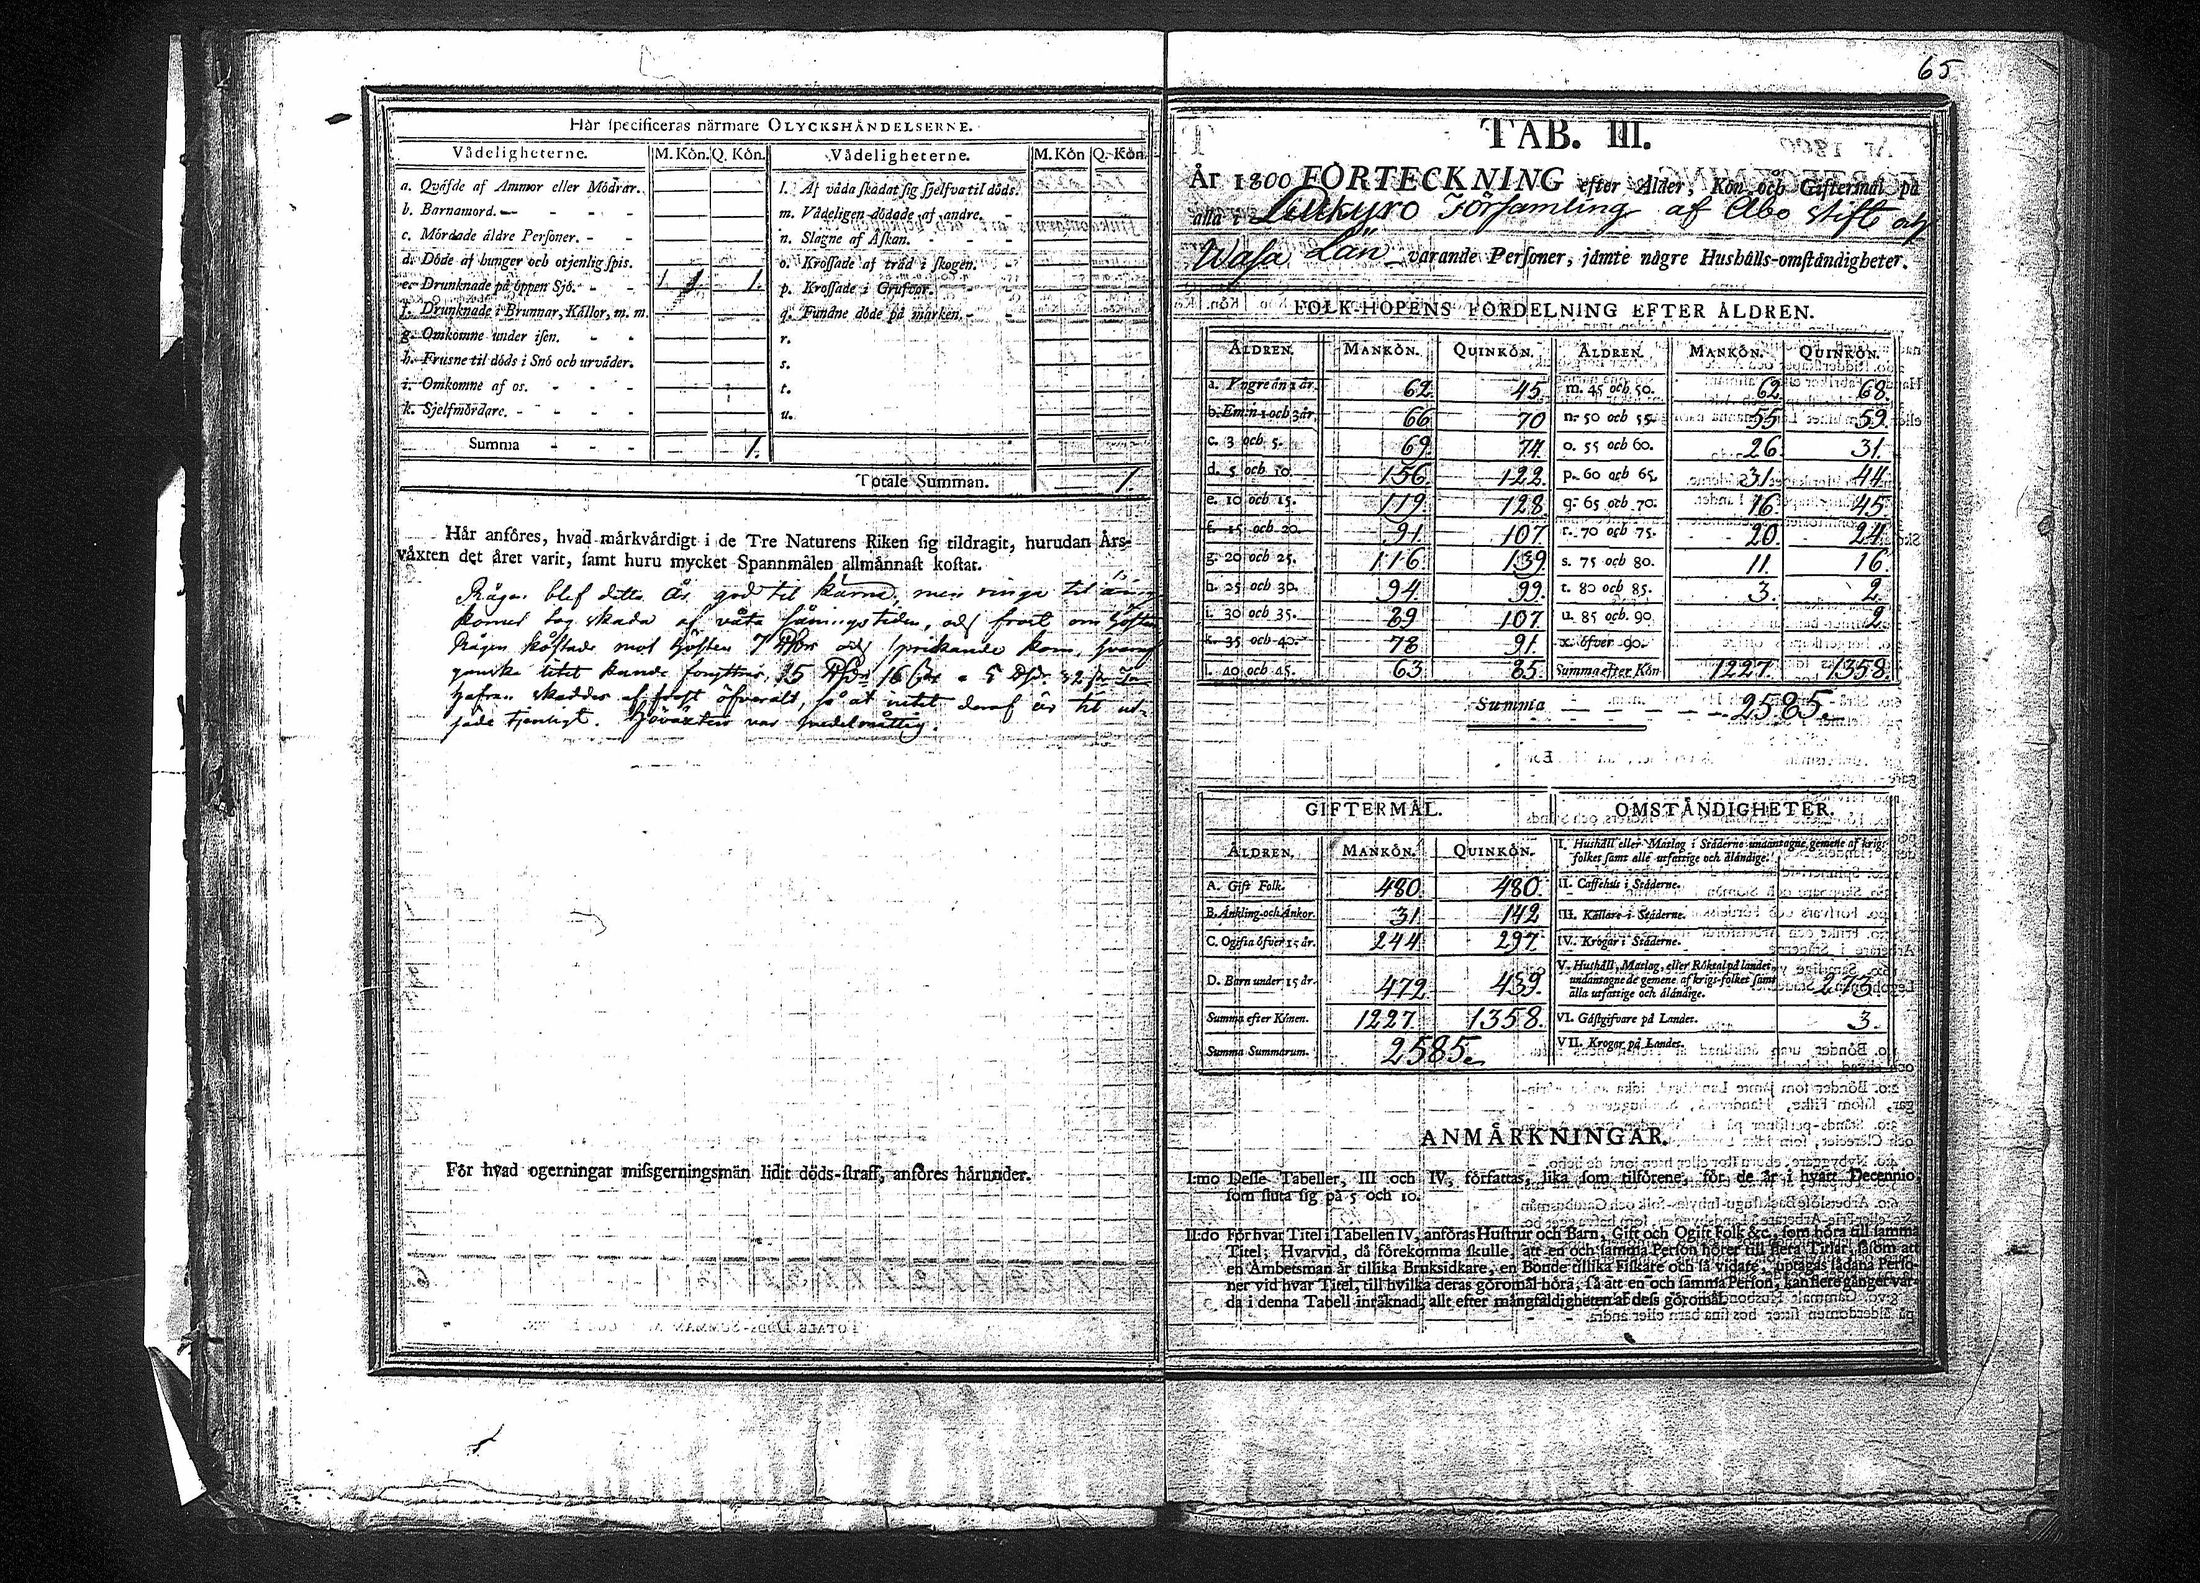 Hår specificeras närmare OLYCKSHÄNDELSERNE.
Vådeligheterne. M. Kön. Q. Kön. Vådeligheterne. M. Kön Q. Kön.
a. Qväfde af Ammor eller Mödrar. l. Af våda skadat sig sjelfva til döds.
b. Barnamord. m. Vådeligen dödade af andre.
c. Mördade äldre Personer. n. Slagne af Åskan.
d. Döde af hunger och otjenlig spis. o. Krossade af träd i skogen.
e. Drunknade på öppen Sjö. 1. p. Krossade i Grufvor.
f. Drunknade i Brunnar, Källor, m. m. q. Fundne döde på marken.
g. Omkomne under isen. r.
h. Frusne til döds i Snö och urväder. s.
i. Omkomne af os. t.
k. Sjelfmördare. u.
Summa 1.
Totale Summan. 1.
Hår anföres, hvad märkvärdigt i de Tre Naturens Riken sig tildragit, hurudan Års-
våxten det året varit, samt huru mycket Spannmålen allmånnast kostat.
Rågen blef detta År god til kärna, men ringa til
Kornet tog skada af våta såningstiden, och frost om hösten
Rågen kostade mot hösten 7 och
ganska litet kunde 15 16 a 5 32
Hafren skaddes af frost öfveralt, så at intet deraf är til ut-
säde tjenligt. Höväxten var medelmåttig.
För hvad ogerningar missgerningsmän lidit döds-straff, anföres hårunder.
65
TAB. III.
År 1800 FÖRTECKNING efter Ålder, Kön och Giftermål på
alla i Lillkyro Församling af Åbo Stift och
Wasa Län varande Personer, jämte någre Hushålls-omständigheter.
FOLK-HOPENS FÖRDELNING EFTER ÅLDREN.
ÅLDREN. MANKÖN. QUINKÖN. ÅLDREN. MANKÖN. QUINKÖN.
a. Yngre än 1 år. 62 45. m. 45 och 50. 62 68.
b. Emin 1 och 3 år. 66 70 n. 50 och 55. 55 59.
c. 3 och 5. 69 74. o. 55 och 60. 26. 31.
d. 5 och 10. 156 122. p. 60 och 65. 31. 44.
e. 10 och 15. 119 128. q. 65 och 70. 16. 45.
f. 15 och 20. 91. 107. r. 70 och 75. 20. 24.
g. 20 och 25. 116. 139. s. 75 och 80. 11. 16.
h. 25 och 30. 94. 99. t. 80 och 85. 3. 2.
i. 30 och 35. 89 107. u. 85 och 90. 2.
k. 35 och 40. 78 91. x. öfver 90.
l. 40 och 45. 63. 85. Summa efter Kön 1227. 1358.
Summa 2585.
GIFTERMÅL. OMSTÄNDIGHETER.
ÅLDREN. MANKÖN. QUINKÖN. I. Hushåll eller Matlag i Städerne undantagne gemene af krigs-
folket samt alle utfattige och åländige.
A. Gift Folk. 480. 480. II. Caffehus i Städerne.
B. Änkling. och Änkor. 31. 142 III. Källare i Städerne.
C. Ogifta öfver 15 år. 244. 297. IV. Krogar i Städerne.
D. Barn under 15 år. 472. 439. V. Hushåll, Matlag, eller Röketal på landet,
undantagne de gemene af krigs-folket samt
alla utfattige och åländige. 273.
Summa efter Könen. 1227. 1358. VI. Gästgifvare på Landet. 3.
Summa Summarum. 2585. VII. Krogar på Landet.
ANMÄRKNINGAR.
I:mo Desse Tabeller, III och IV, författas, lika som tilförene, för de år i hvart Decennio,
som sluta sig på 5 och 10.
II:do För hvar Titel i Tabellen IV, anföras Hustrur och Barn, Gift och Ogift Folk &c., som höra till samma
Titel; Hvarvid, då förekomma skulle, att en och samma Person hörer till flera Titlar, såsom att
en Ämbetsman är tillika Bruksidkare, en Bonde tillika Fiskare och så vidare, upptagas sådana Perso-
ner vid hvar Titel, till hvilka deras göromål höra, så att en och samma Person, kan flere gånger var-
da i denna Tabell inräknad, allt efter mångfaldigheten af dess göromål.